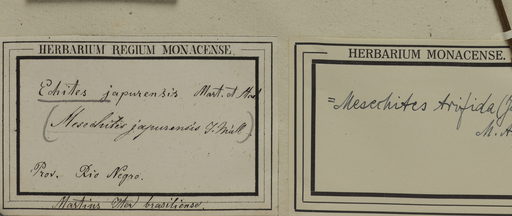 HERBARIUM REGIUM MONACENSE.
Echites japurensis Mart. et
(Mesechites japurensis J. Müll)
Prov. Rio Negro.
Martius Iter brasiliense.
HERBARIUM MONACENSE.
=Mesechites trifida (J
M. A